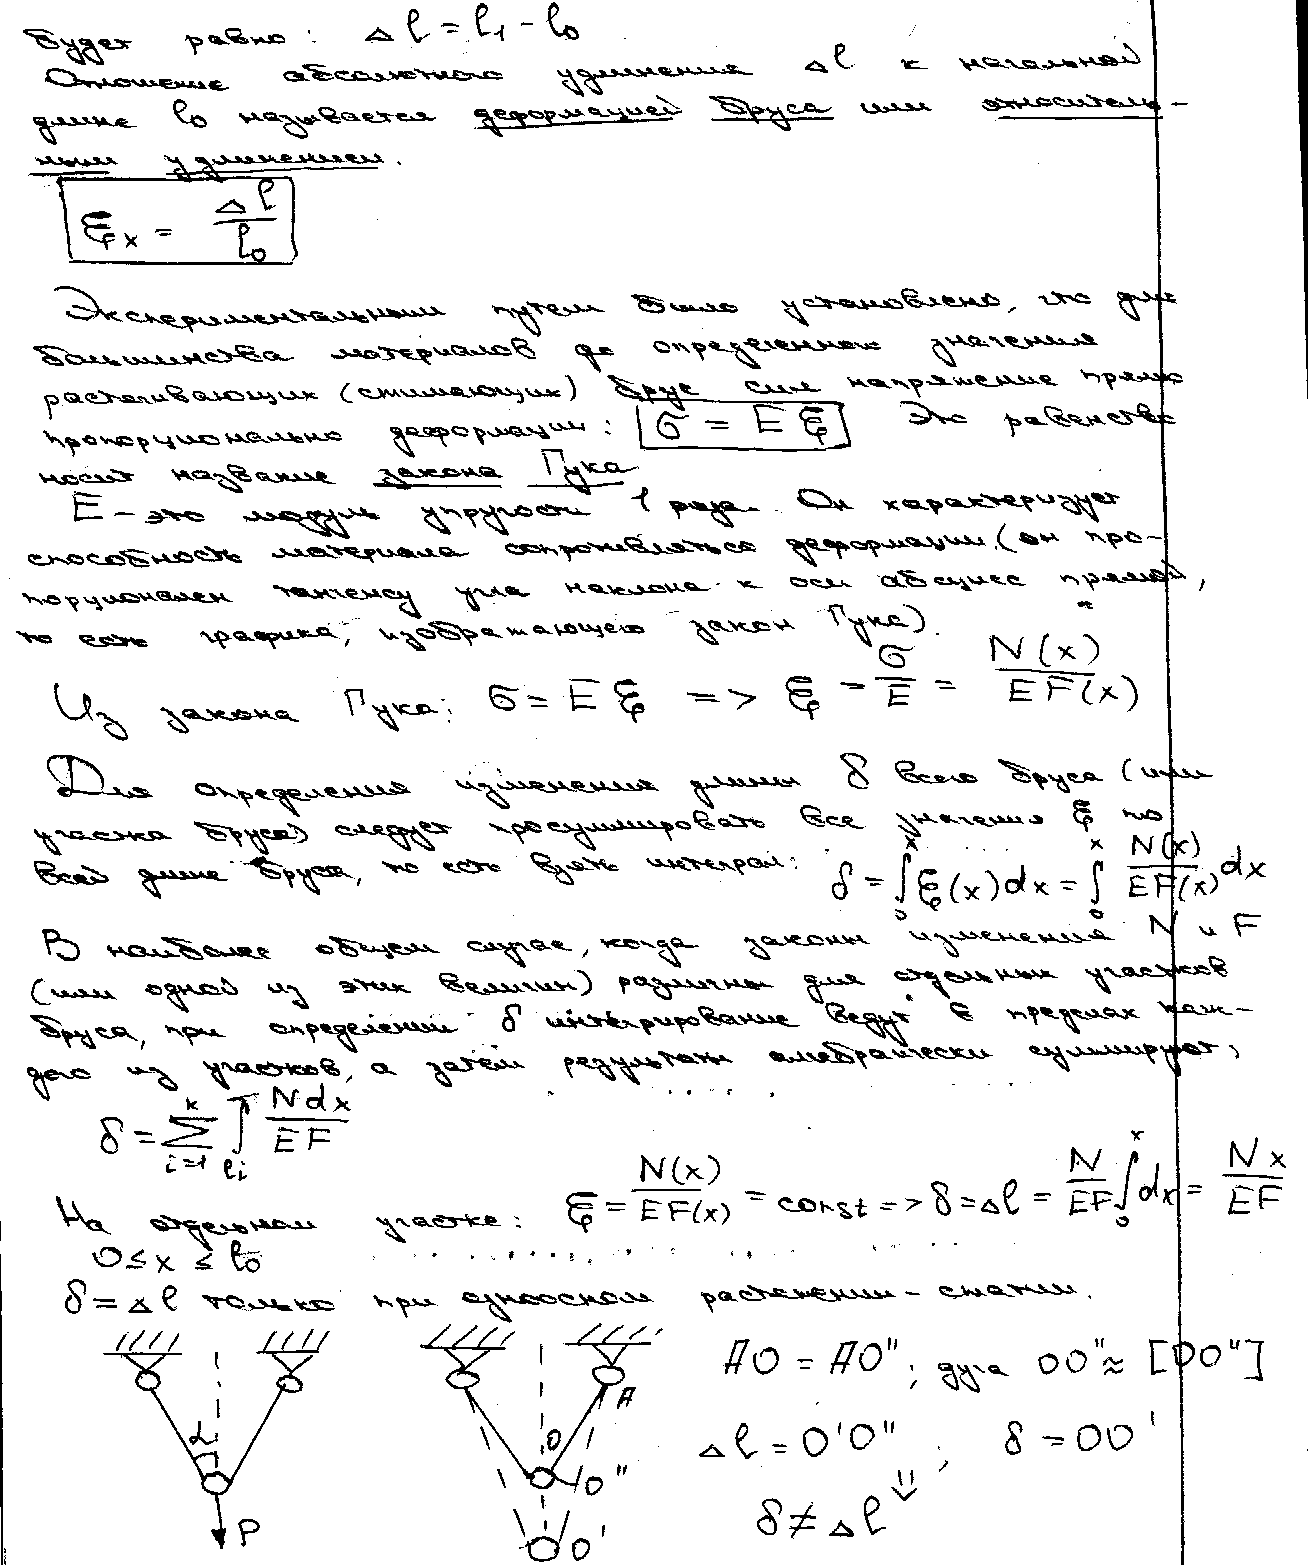 будет равно: Δl = l₁ - l₀
Отношение абсолютного удлинения Δl к начальной
длине l₀ называется деформацией бруса или относитель-
ным удлинением.
ξx = Δl / l₀
Экспериментальным путем было установлено, что для
большинства материалов до определенных значения
растягивающих (сжимающих) брус сил напряжение прямо
пропорционально деформации: σ = E ξ Это равенство
носит название закона Гука
E - это модуль упругости 1 рода. Он характеризует
способность материала сопротивляться деформации. (он про-
порционален тангенсу угла наклона к оси абсцисс прямой,
то есть графика, изображающего закон Гука).
Из закона Гука: σ = E ξ => ξ = σ / E = N(x) / EF(x)
Для определения изменения длины δ всего бруса (или
участка бруса) следует просуммировать все значения ξ по
всей длине бруса, то есть взять интеграл: δ = ∫₀ˣ ξ(x)dx = ∫₀ˣ N(x) / EF(x) dx
В наиболее общем случае, когда законы изменения N и F
(или одной из этих величин) различны для отдельных участков
бруса, при определении δ интегрирование ведут в пределах каж-
дого из участков, а затем результаты алгебраически суммируют;
δ = Σ k i=1 ∫ li N dx / EF
На отдельном участке: ξ = N(x) / EF(x) = const => δ = Δl = N / EF ∫₀ˣ dx = Nx / EF
0 ≤ x ≤ l₀
δ = Δl только при одноосном растяжении-сжатии.
AO = AO"; дуга OO" ≈ [OO"]
A
α
O
O"
Δl = O'O", δ = OO'
⇓
δ ≠ Δl
P
O'